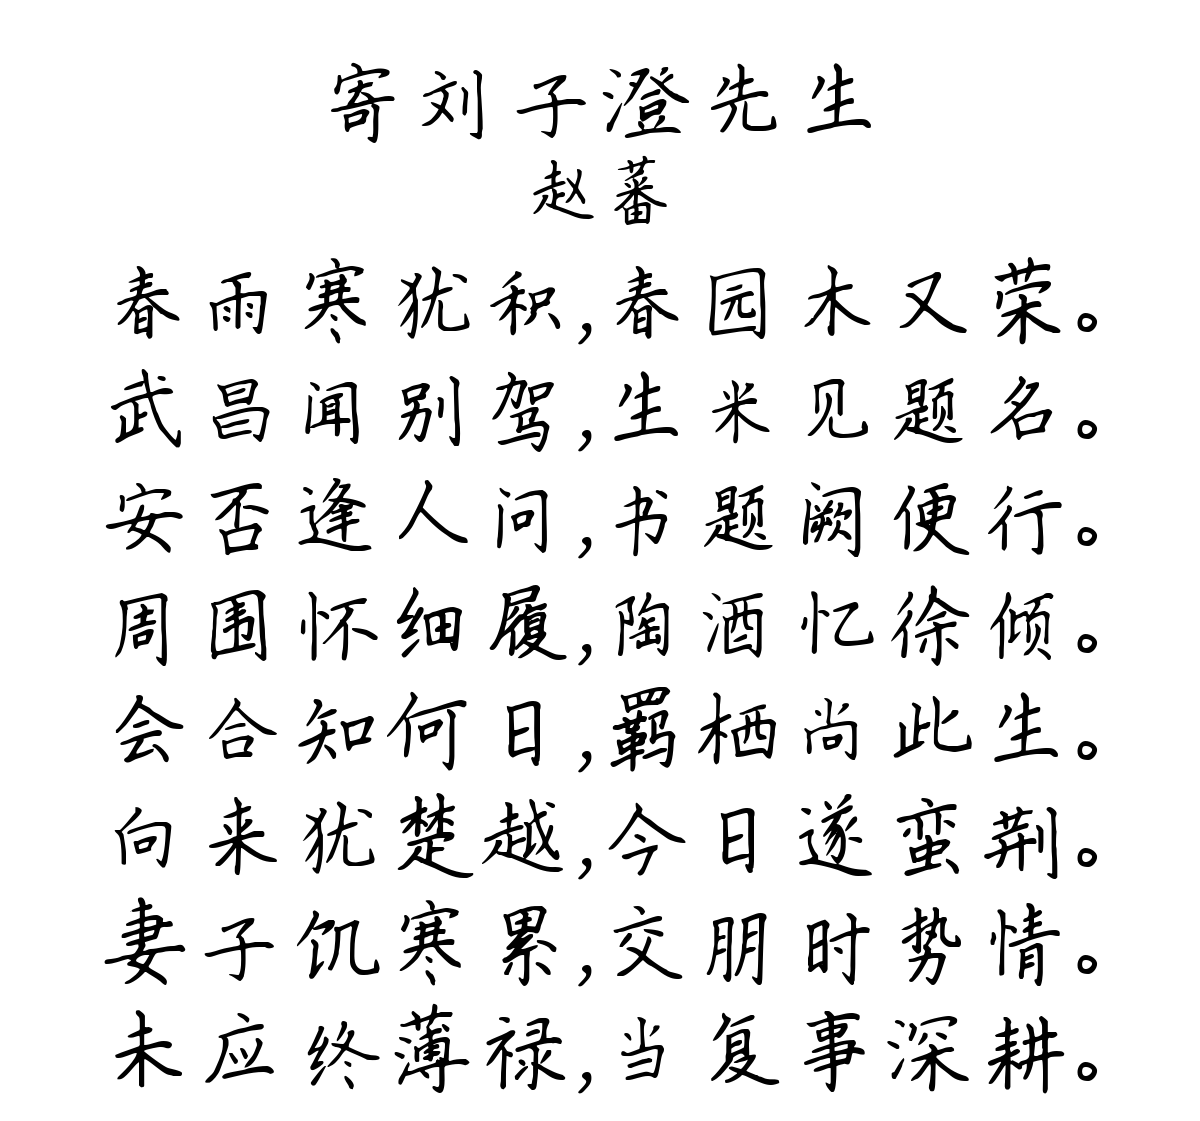 寄刘子澄先生
赵蕃
春雨寒犹积,春园木又荣。
武昌闻别驾,生米见题名。
安否逢人问,书题阙便行。
周围怀细履,陶酒忆徐倾。
会合知何日,羁栖尚此生。
向来犹楚越,今日遂蛮荆。
妻子饥寒累,交朋时势情。
未应终薄禄,当复事深耕。